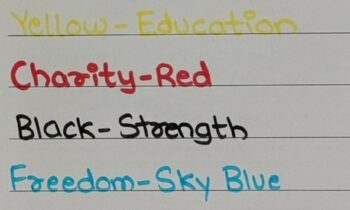 Yellow-Education
Charity-Red
Black-Strength
Freedom-Sky Blue